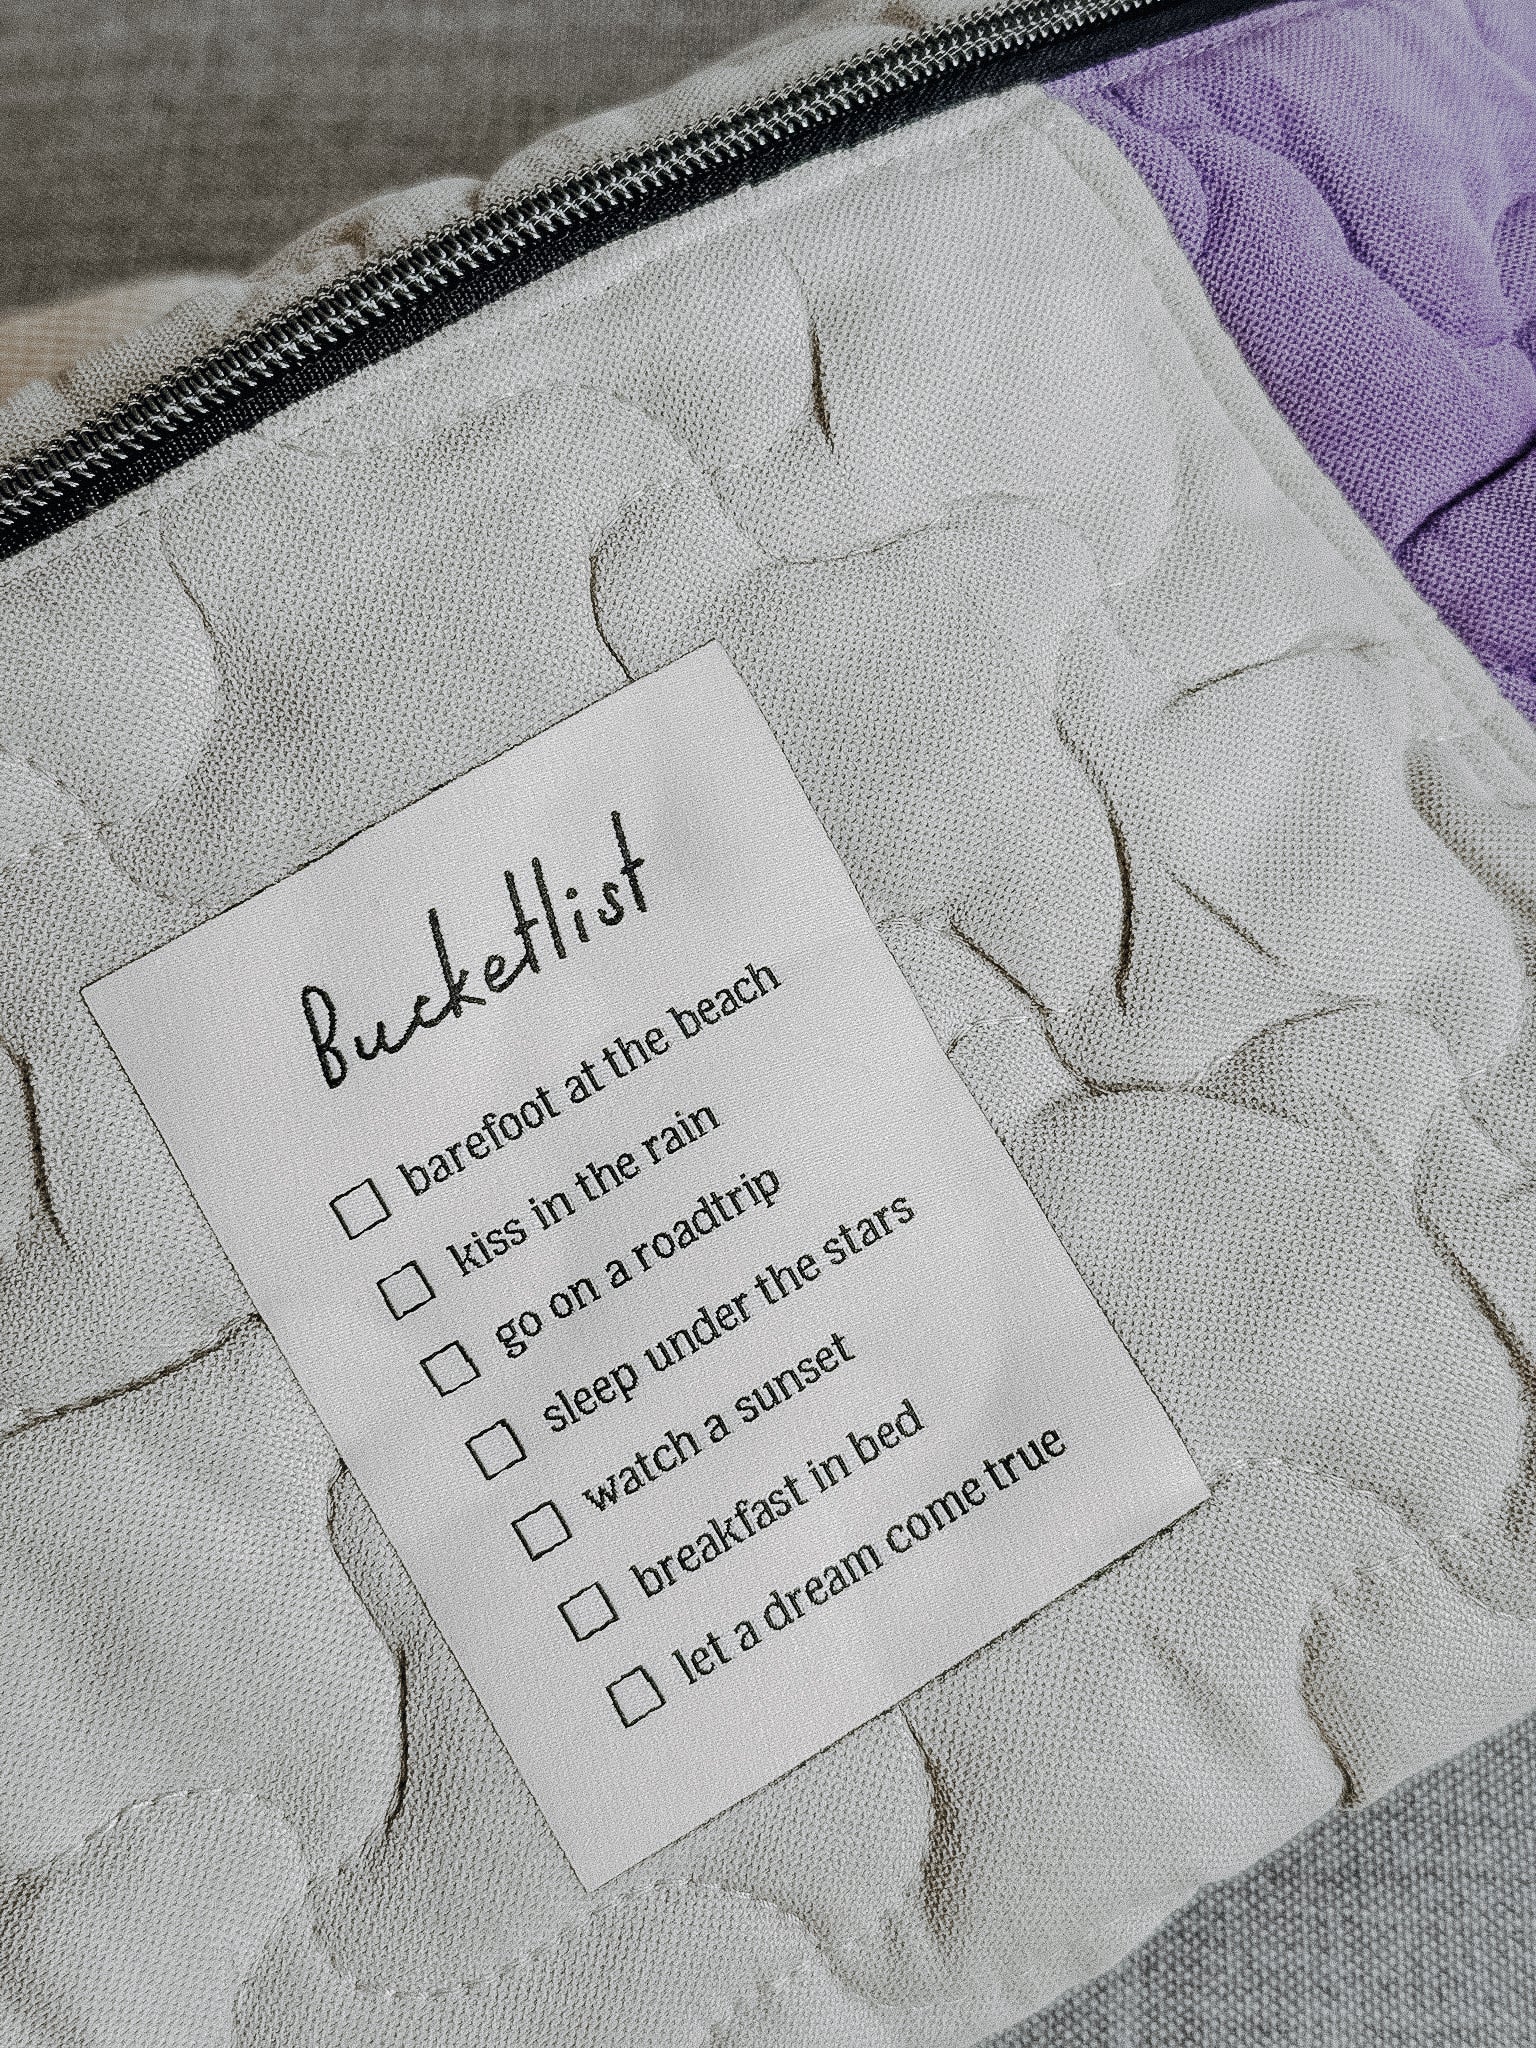 Bucketlist
barefoot at the beach
kiss in the rain
go on a roadtrip
sleep under the stars
watch a sunset
breakfast in bed
let a dream come true